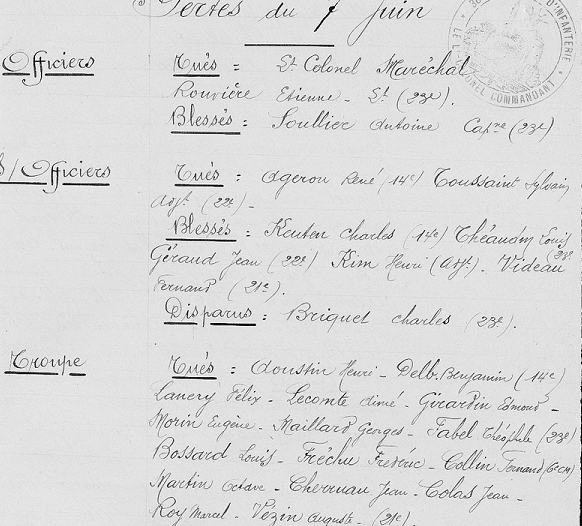 Pertes du 7 Juin
Officiers Tués = Lt Colonel Maréchal
Rouvière Etienne - Lt (23e).
Blessés : Soullier Antoine Capne (23e)
S/Officiers Tués : Ageron René (14e) Toussaint Sylvain
Adjt (22e) -
Blessés : Kauten Charles (14e) Louis
Géraud Jean (22e) Kim Henri (Adjt). Videau (23e
Fernand (21e).
Disparus : Briquet Charles (23e).
Troupe Tués : Henri - Delb. Benjamin (14e)
Lanery Félix - Lecomte Aimé - Girardin Edmond -
Morin Eugène - Maillard Georges - Fabel Théophile (23e)
Bossard Louis - Fréchu Frédéric - Collin Fernand (6eCM)
Martin Octave - Cherruau Jean - Colas Jean -
Roy Marcel - Vézin Auguste - (21e).
D'INFANTERIE
COLONEL COMMANDANT